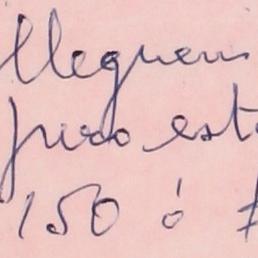 lleguen
pero est
150 ó